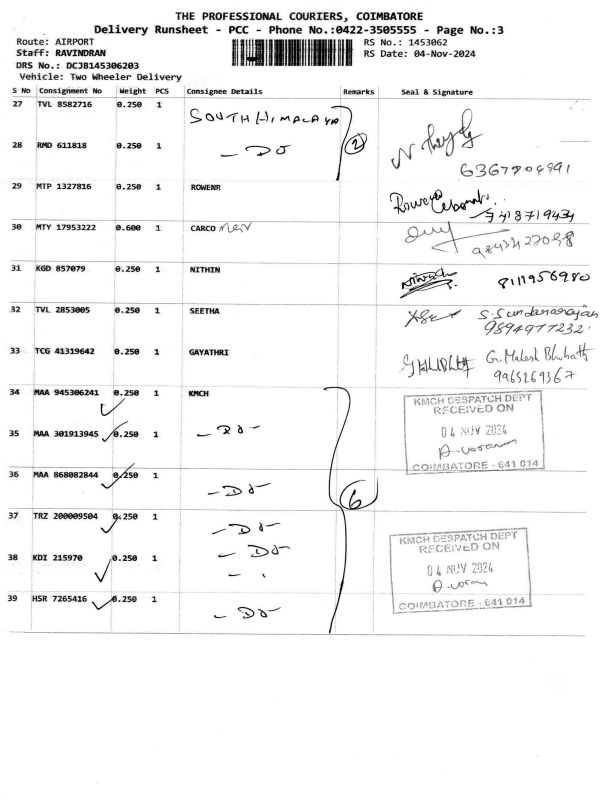 THE PROFESSIONAL COURIERS, COIMBATORE
Delivery Runsheet - PCC - Phone No.:0422-3505555 - Page No.:3
Route: AIRPORT RS No.: 1453062
Staff: RAVINDRAN RS Date: 04-Nov-2024
DRS No.: DCJB145306203
Vehicle: Two Wheeler Delivery
S No Consignment No Weight PCS Consignee Details Remarks Seal & Signature
27 TVL 8582716 0.250 1 SOUTH HIMALAYA
28 RMD 611818 0.250 1 - Do 2
6367204991
29 MTP 1327816 0.250 1 ROWENR
7418719434
30 MTY 17953222 0.600 1 CARCO
9843427098
31 KGD 857079 0.250 1 NITHIN 8111956980
32 TVL 2853005 0.250 1 SEETHA S. Sundararajan
9894977232
33 TCG 41319642 0.250 1 GAYATHRI G. Mahesh Bhubath
9965269367
34 MAA 945306241 0.250 1 KMCH KMCH DESPATCH DEPT
RECEIVED ON
35 MAA 301913945 0.250 1 - Do - 04 NOV 2024
COIMBATORE - 641 014
36 MAA 868082844 0.250 1 - Do - 6
37 TRZ 200009504 0.250 1 - Do - KMCH DESPATCH DEPT
RECEIVED ON
38 KDI 215970 0.250 1 - Do - 04 NOV 2024
39 HSR 7265416 0.250 1 - Do - COIMBATORE - 641 014